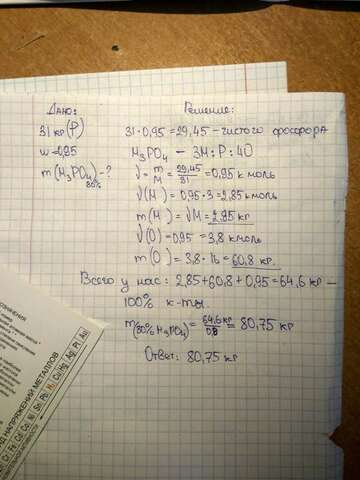 Дано:
31 кг (P)
w = 0,95
m(H3PO4)-?
80%
Решение:
31·0,95 = 29,45 - чистого фосфора
H3PO4 - 3H : P : 4O
√ = m/M = 29,45/31 = 0,95 к моль
√(H) = 0,95·3 = 2,85 кмоль
m(H) = √M = 2,85 кг
√(O) = 0,95 = 3,8 кмоль
m(O) = 3,8·16 = 60,8 кг.
Всего у нас: 2,85+60,8+0,95 = 64,6 кг —
100% к-ты.
m(80% H3PO4) = 64,6 кг/0,8 = 80,75 кг
Ответ: 80,75 кг
Д НАПРЯЖЕНИЙ МЕТАЛЛОВ
Cr Fe Cd Co Ni Sn Pb H2 Cu Hg Ag Pt Au